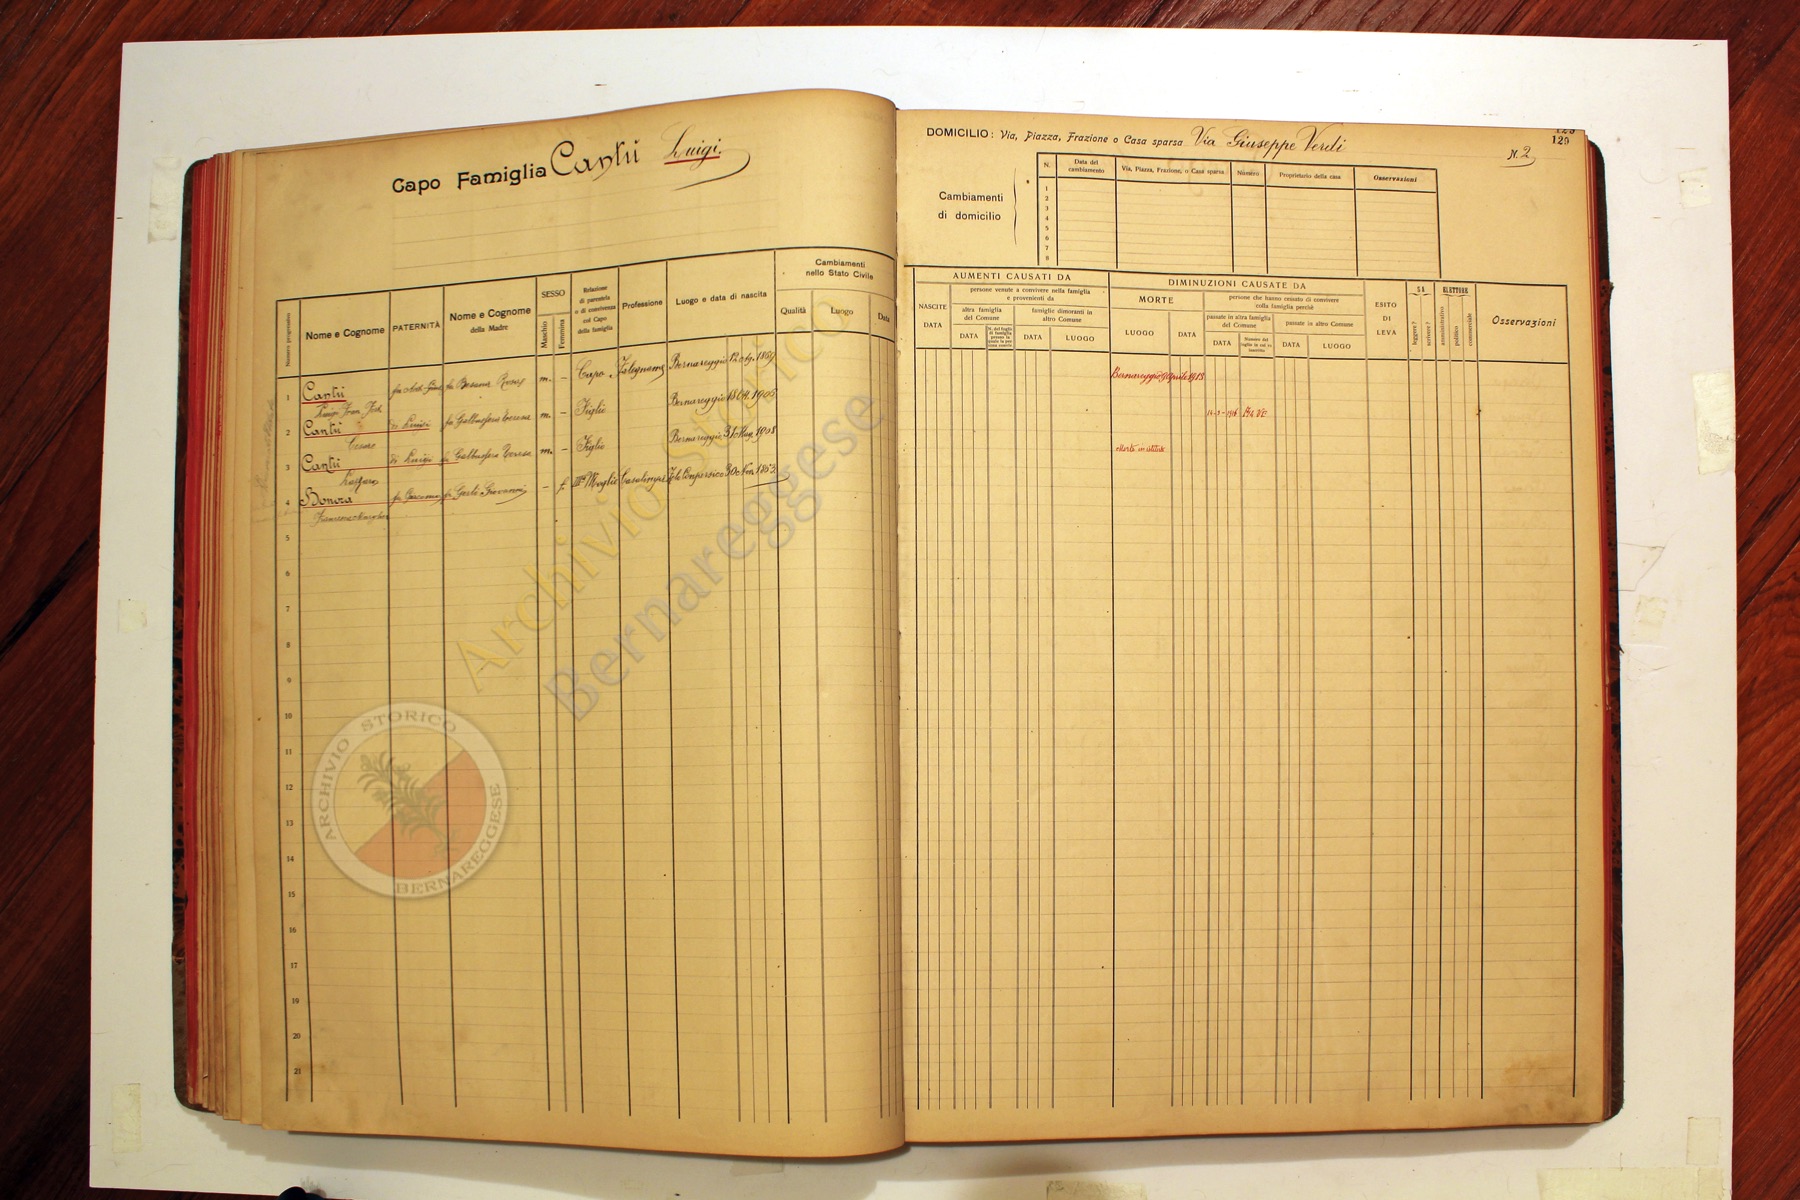 Capo Famiglia Cantù Luigi.
Numero progressivo
Nome e Cognome
PATERNITÀ
Nome e Cognome
della Madre
SESSO
Maschio
Femmina
Relazione
di parentela
o di convivenza
col Capo
della famiglia
Professione
Luogo e data di nascita
Cambiamenti
nello Stato Civile
Qualità
Luogo
Data
1 Cantù fu Besana Rosa m. – Capo Falegname Bernareggio
Luigi Fran.
2 Cantù di Luigi fu Galbusera Teresa m. – Figlio Bernareggio 1905
Cesare
3 Cantù di Luigi fu Galbusera Teresa m. – Figlio Bernareggio 31 Mag. 1908
4 Bonora fu Giacomo fu Gerli Giovanni – f. IIIa Moglie Casalinga 30 Nov. 1853
5
6
7
8
9
10
11
12
13
14
15
16
17
19
20
21
DOMICILIO: Via, Piazza, Frazione o Casa sparsa Via Giuseppe Verdi
N. 2
129
Cambiamenti
di domicilio
N.
Data del
cambiamento
Via, Piazza, Frazione, o Casa sparsa
Numero
Proprietario della casa
Osservazioni
1
2
3
4
5
6
7
8
AUMENTI CAUSATI DA
NASCITE
DATA
persone venute a convivere nella famiglia
e provenienti da
altra famiglia
del Comune
DATA
famiglie dimoranti in
altro Comune
DATA
LUOGO
DIMINUZIONI CAUSATE DA
MORTE
LUOGO
DATA
persone che hanno cessato di convivere
colla famiglia perchè
passate in altra famiglia
del Comune
DATA
passate in altro Comune
DATA
LUOGO
ESITO
DI
LEVA
SA
leggere?
scrivere?
ELETTORE
amministrativo
politico
commerciale
Osservazioni
Bernareggio 9 Aprile 1918
ARCHIVIO STORICO
BERNAREGGESE
Archivio Storico
Bernareggese